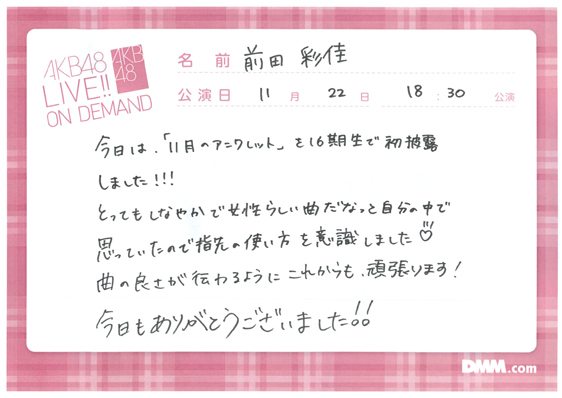 AKB48
LIVE!!
ON DEMAND
AKB
48
名 前 前田 彩佳
公演日 11 月 22 日 18:30 公演
今日は、「11月のアンクレット」を16期生で初披露
しました!!!
とってもしなやかで女性らしい曲だなっと自分の中で
思っていたので指先の使い方を意識しました♡
曲の良さが伝わるようにこれからも、頑張ります!
今日もありがとうございました!!
DMM.com